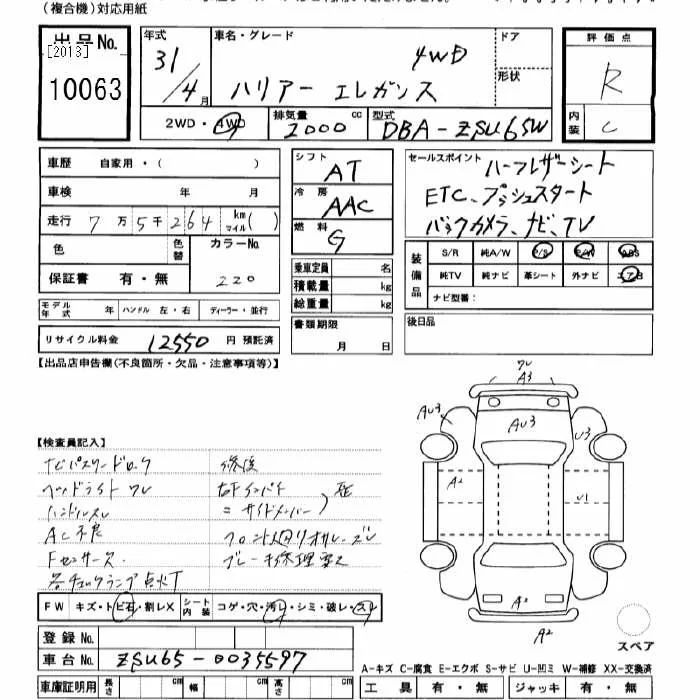 (複合機)対応用紙
出品No.
[2013]
10063
年式
31/4月
車名・グレード
4WD
ハリアー エレガンス
ドア
形状
2WD・4WD
排気量 2000 cc
型式 DBA-ZSU65W
評価点
R
内装
C
車歴 自家用・( )
車検 年 月
走行 7万5千264 km マイル( )
色
色替
カラーNo.
220
保証書 有・無
シフト
AT
冷房
AAC
燃料
G
乗車定員 名
積載量 kg
総重量 kg
セールスポイント ハーフレザーシート
ETC、プッシュスタート
バックカメラ、ナビ、TV
装備品
S/R 純A/W P/S P/W ABS
純TV 純ナビ 革シート 外ナビ エアB
ナビ型番:
モデル年式 年 ハンドル 左・右 ディーラー・並行
リサイクル料金 12550 円 預託済
書類期限
月 日
後日品
【出品店申告欄(不良箇所・欠品・注意事項等)】
【検査員記入】
ナビパスワードロック
ヘッドライトワレ
ハンドルスレ
AC不良
Fセンサー
各チェックランプ点灯
修復
右Fインパネ
〃サイドメンバー
フロント廻り
ブレーキ修理要ス
ワレ
A3
AU3
AU3
U3
A2
U1
A2
A2
スペア
FW キズ・トビ石・割レX シート内装 コゲ・穴・汚レ・シミ・破レ・スレ
登録No.
車台No. ZSU65-0035597
車庫証明用 長さ cm 幅 cm 高さ cm
A-キズ C-腐食 E-エクボ S-サビ U-凹ミ W-補修 XX-交換済
工具 有・無 ジャッキ 有・無